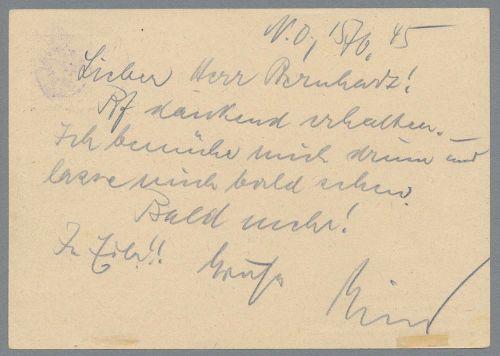 N.O., 15/6. 45
Lieber Herr Bernhard!
Rf dankend erhalten.
Ich bemühe mich drum und
lasse mich bald sehen.
Bald mehr!
In Eile!! Gruß